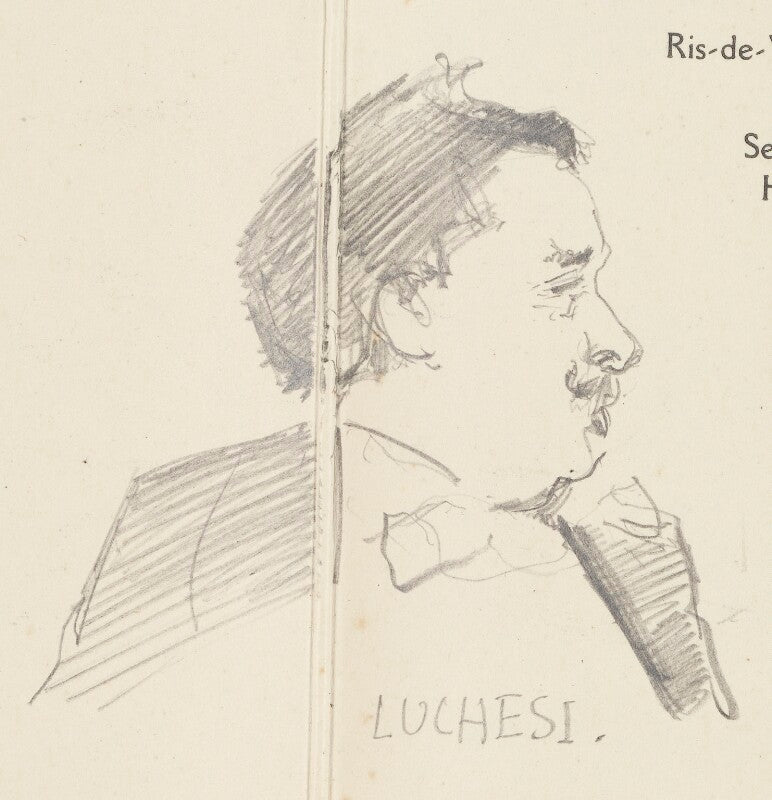 Ris-de-
Se
H
LUCHESI.